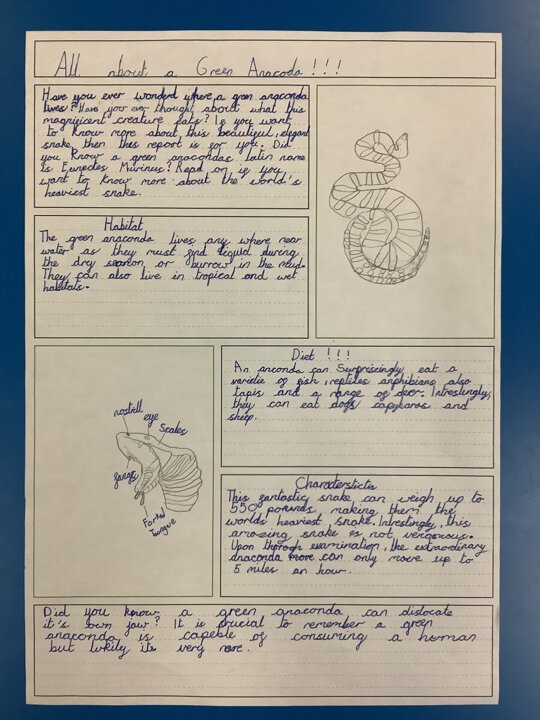 All about a Green Anacoda!!!
Have you ever wonderd where a green anaconda
lives? Have you ever thought about what this
magnificent creature eats? If you want
to know more about this beautiful, elegant
snake, then this report is for you. Did
you know a green anacondas latin name
is Eunectes Murinus? Read on if you
want to know more about the world's
heaviest snake.
Habitat
The green anaconda lives any where near
water as they must find liquid during
the dry season or burrow in the mud.
They can also live in tropical and wet
habitats.
Diet !!!
An anconda can Surprisingly eat a
varietie of fish, reptiles amphibians also
tapis and a range of deer. Intrestingly,
they can eat dogs capybaras and
sheep.
nostrill
eye
Scales
fangs
Forted
Tongue
Characterstictis
This fantastic snake can weigh up to
550 pounds making them the
worlds heaviest snake. Intrestingly, this
amazing snake is not vernomous.
Upon thorough examination, the extraordinary
anaconda can only move up to
5 miles an hour.
Did you know a green anaconda can dislocate
it's own jaw? It is crucial to remember a green
anaconda is capeble of consuming a human
but lukily its very rare.